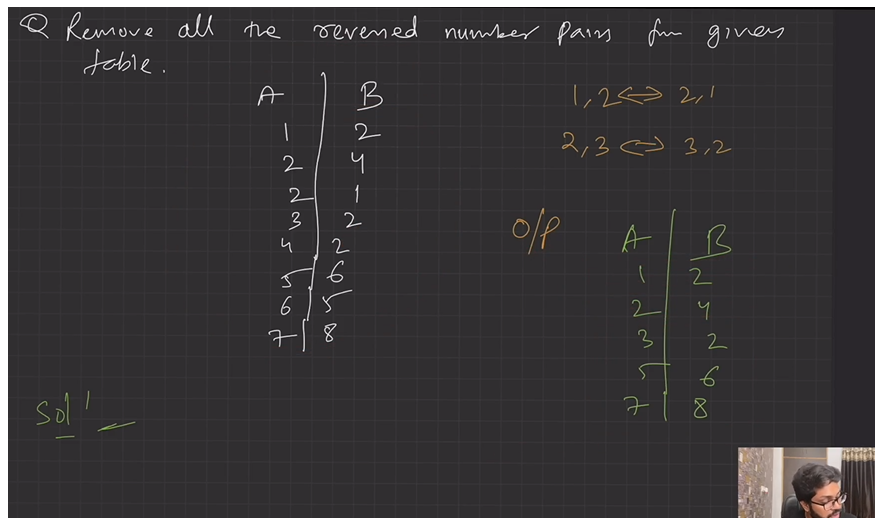 Q Remove all the reversed number pairs from given
table.
A B
1 2
2 4
2 1
3 2
4 2
5 6
6 5
7 8
1,2 ⟺ 2,1
2,3 ⟺ 3,2
O/P
A B
1 2
2 4
3 2
5 6
7 8
Sol'